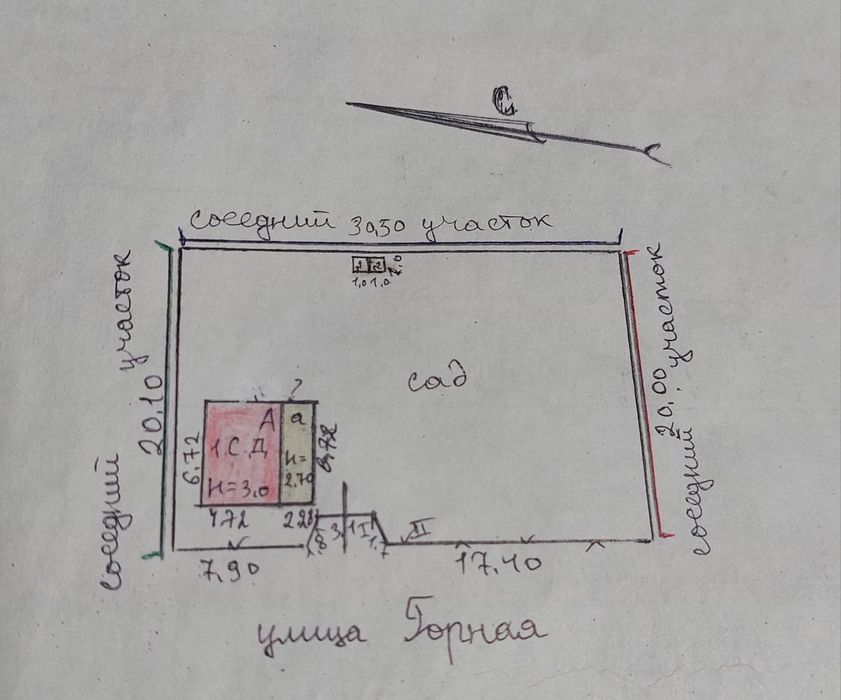 С
соседний 30,50 участок
соседний 20,10 участок
1 2
1,0 1,0
сад
20,00 участок
соседний
А а
1.С.Д
Н=3.0
Н=
2,70
6,72
6,72
4,72 2,28
I
1,7
II
7,90
17,40
улица Горная